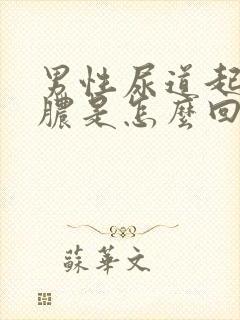 男性尿道起
膿是怎麼回
蘇華文